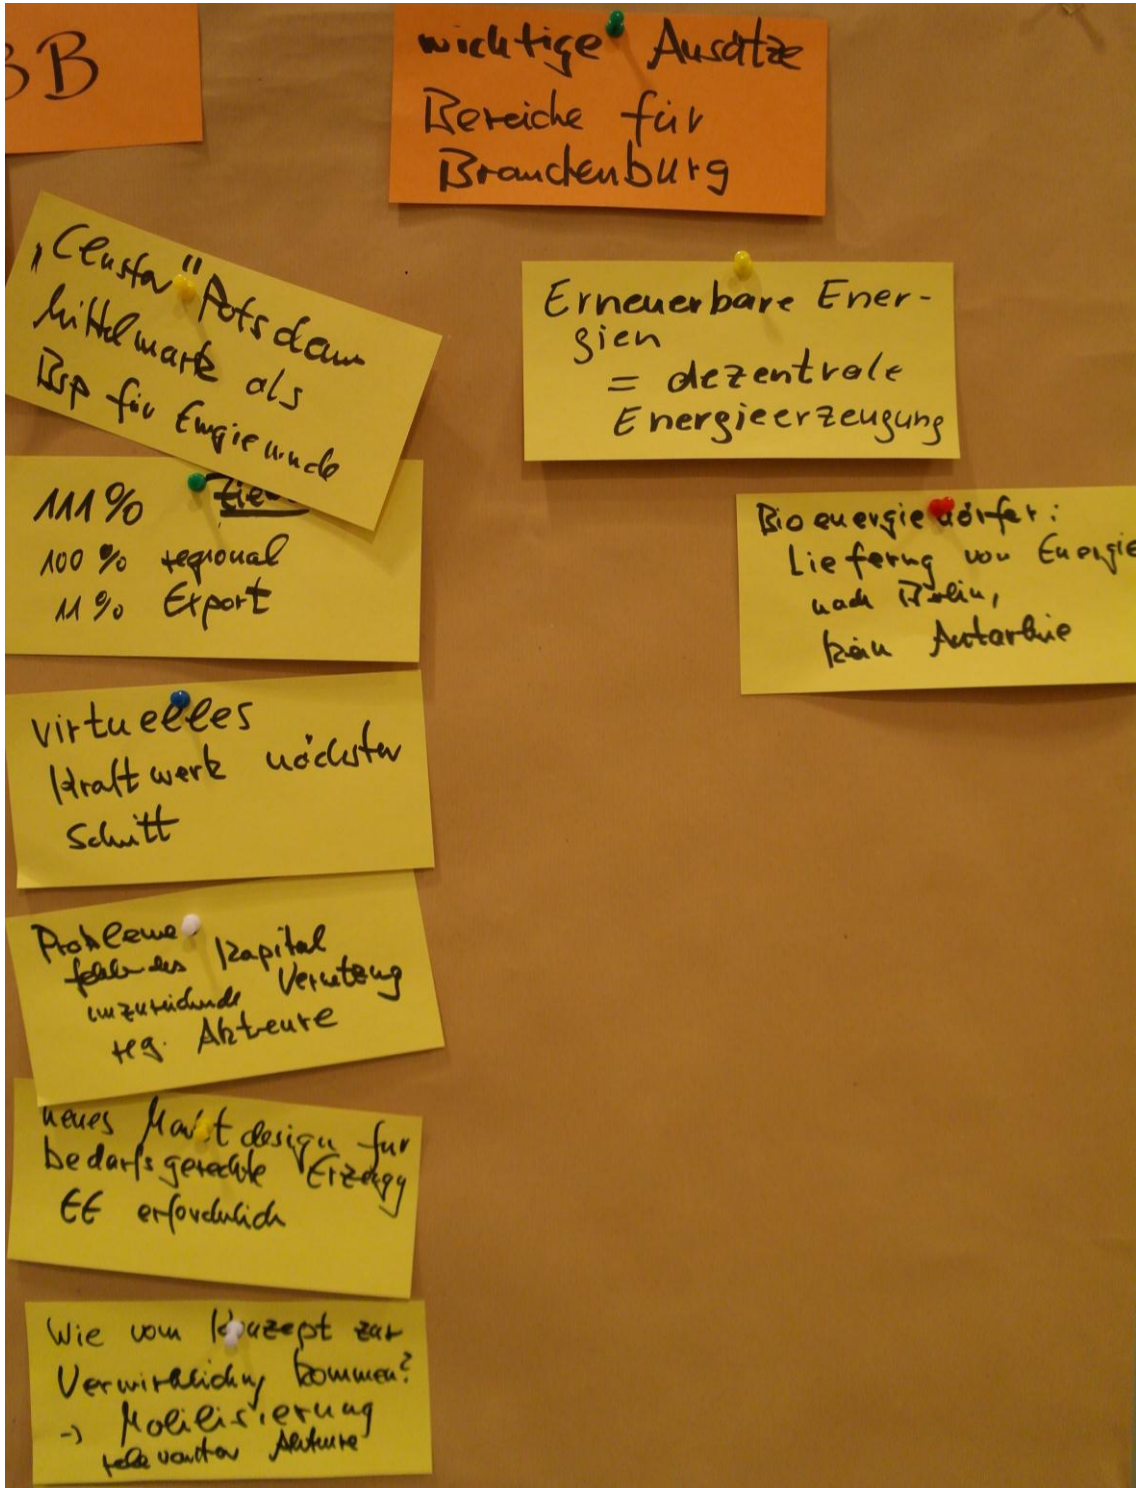 BB
wichtige Ansätze
Bereiche für
Brandenburg
"Cluster" Potsdam
Mittelmark als
Bsp für Energiewende
111% Ziel
100 % regional
11 % Export
virtuelles
Kraftwerk nächster
Schritt
Probleme
fehlendes Kapital
unzureichende Vernetzung
reg. Akteure
neues Marktdesign für
bedarfsgerechte Erzeugg
EE erforderlich
Wie vom Konzept zur
Verwirklichung kommen?
-> Mobilisierung
relevanter Akteure
Erneuerbare Ener-
gien
= dezentrale
Energieerzeugung
Bioenergiedörfer:
Lieferung von Energie
nach Berlin,
kein Autarkie